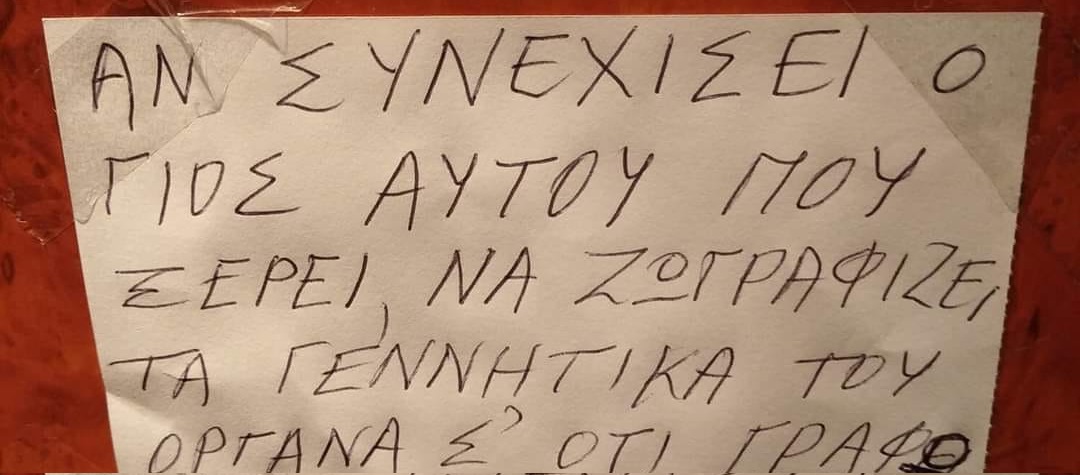 ΑΝ ΣΥΝΕΧΙΣΕΙ Ο
ΓΙΟΣ ΑΥΤΟΥ ΠΟΥ
ΞΕΡΕΙ, ΝΑ ΖΩΓΡΑΦΙΖΕΙ
ΤΑ ΓΕΝΝΗΤΙΚΑ ΤΟΥ
ΟΡΓΑΝΑ Σ' ΟΤΙ ΓΡΑΦΩ